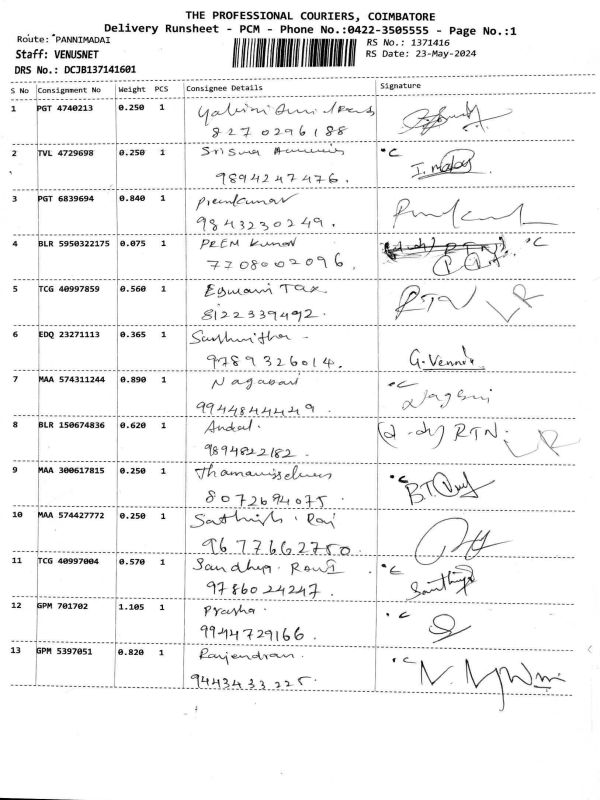 THE PROFESSIONAL COURIERS, COIMBATORE
Delivery Runsheet - PCM - Phone No.:0422-3505555 - Page No.:1
Route: PANNIMADAI
RS No.: 1371416
Staff: VENUSNET
RS Date: 23-May-2024
DRS No.: DCJB137141601
S No Consignment No Weight PCS Consignee Details Signature
1 PGT 4740213 0.250 1
8270296188
2 TVL 4729698 0.250 1 °C
9894247476.
3 PGT 6839694 0.840 1 Premkumar
9843230249.
4 BLR 5950322175 0.075 1 PREM Kumar °C
7708002096.
5 TCG 40997859 0.560 1 Tax RTN LR
8122339492.
6 EDQ 23271113 0.365 1
9789326014. G. Vennila
7 MAA 574311244 0.890 1 °C
9944844449.
8 BLR 150674836 0.620 1 Andal. RTN. LR
9894822182.
9 MAA 300617815 0.250 1 °C
8072694075. B.T.
10 MAA 574427772 0.250 1 Sathish. Raj
9677662750.
11 TCG 40997004 0.570 1 Sandhya °C
9786024247. Santhiya
12 GPM 701702 1.105 1 °C
9944729166.
13 GPM 5397051 0.820 1 Rajendran. °C
9443433225.